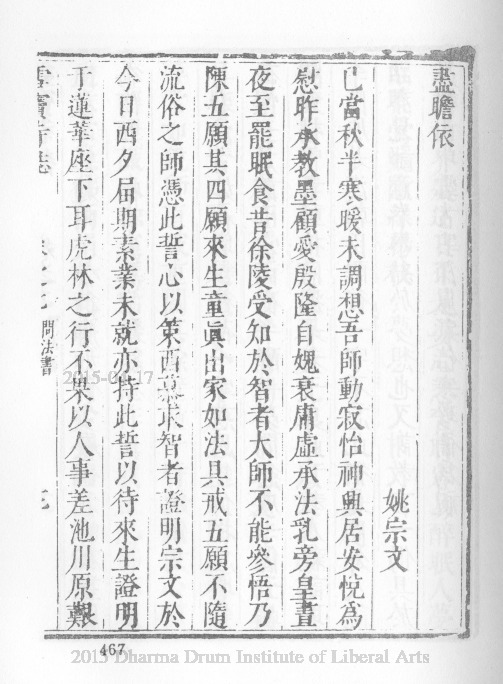 盡瞻依
姚宗文
已當秋半寒暖未調想吾師動寂怡神興居安悅爲
慰昨承教墨顧愛殷隆自媿衰庸虛承法乳旁皇晝
夜至罷眠食昔徐陵受知於智者大師不能參悟乃
陳五願其四願來生童眞出家如法具戒五願不隨
流俗之師憑此誓心以策西慕求智者證明宗文於
今日西夕届期素業未就亦持此誓以待來生證明
于蓮華座下耳虎林之行不果以人事差池川原艱
雪竇寺誌
問法書
2015-03-17
467
2015 Dharma Drum Institute of Liberal Arts